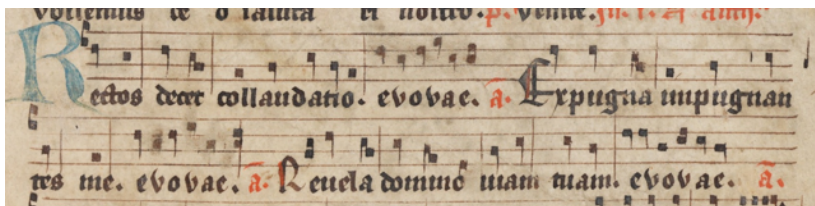 te
Rectos decet collaudatio. evovae. a. Expugna impugnan
tes me. evovae. a. Revela domino viam tuam. evovae. a.